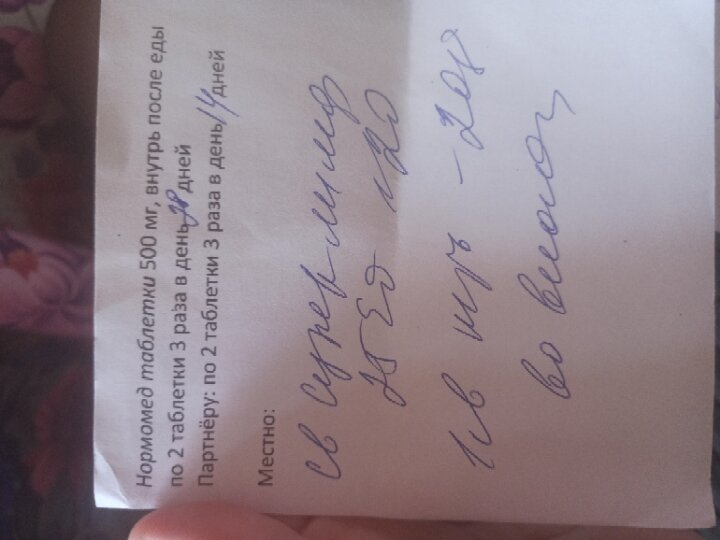 Нормомед таблетки 500 мг, внутрь после еды
по 2 таблетки 3 раза в день 28 дней
Партнёру: по 2 таблетки 3 раза в день 14 дней
Местно:
св суперлимф
25 Ед №20
1св - 20
во влагал